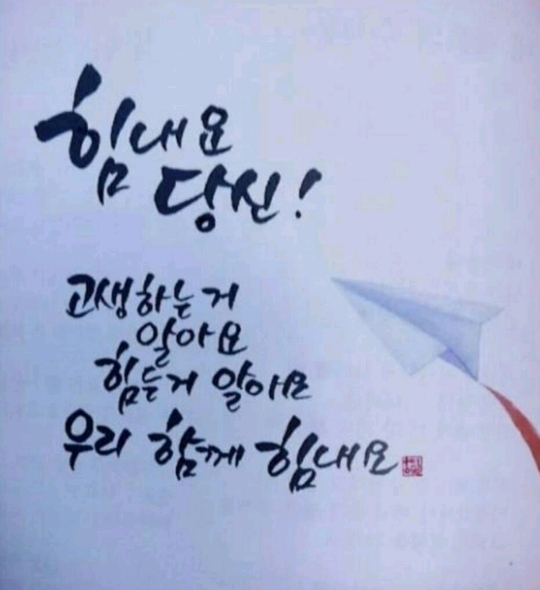 힘내요
당신!
고생하는거
알아요
힘든거 알아요
우리 함께 힘내요